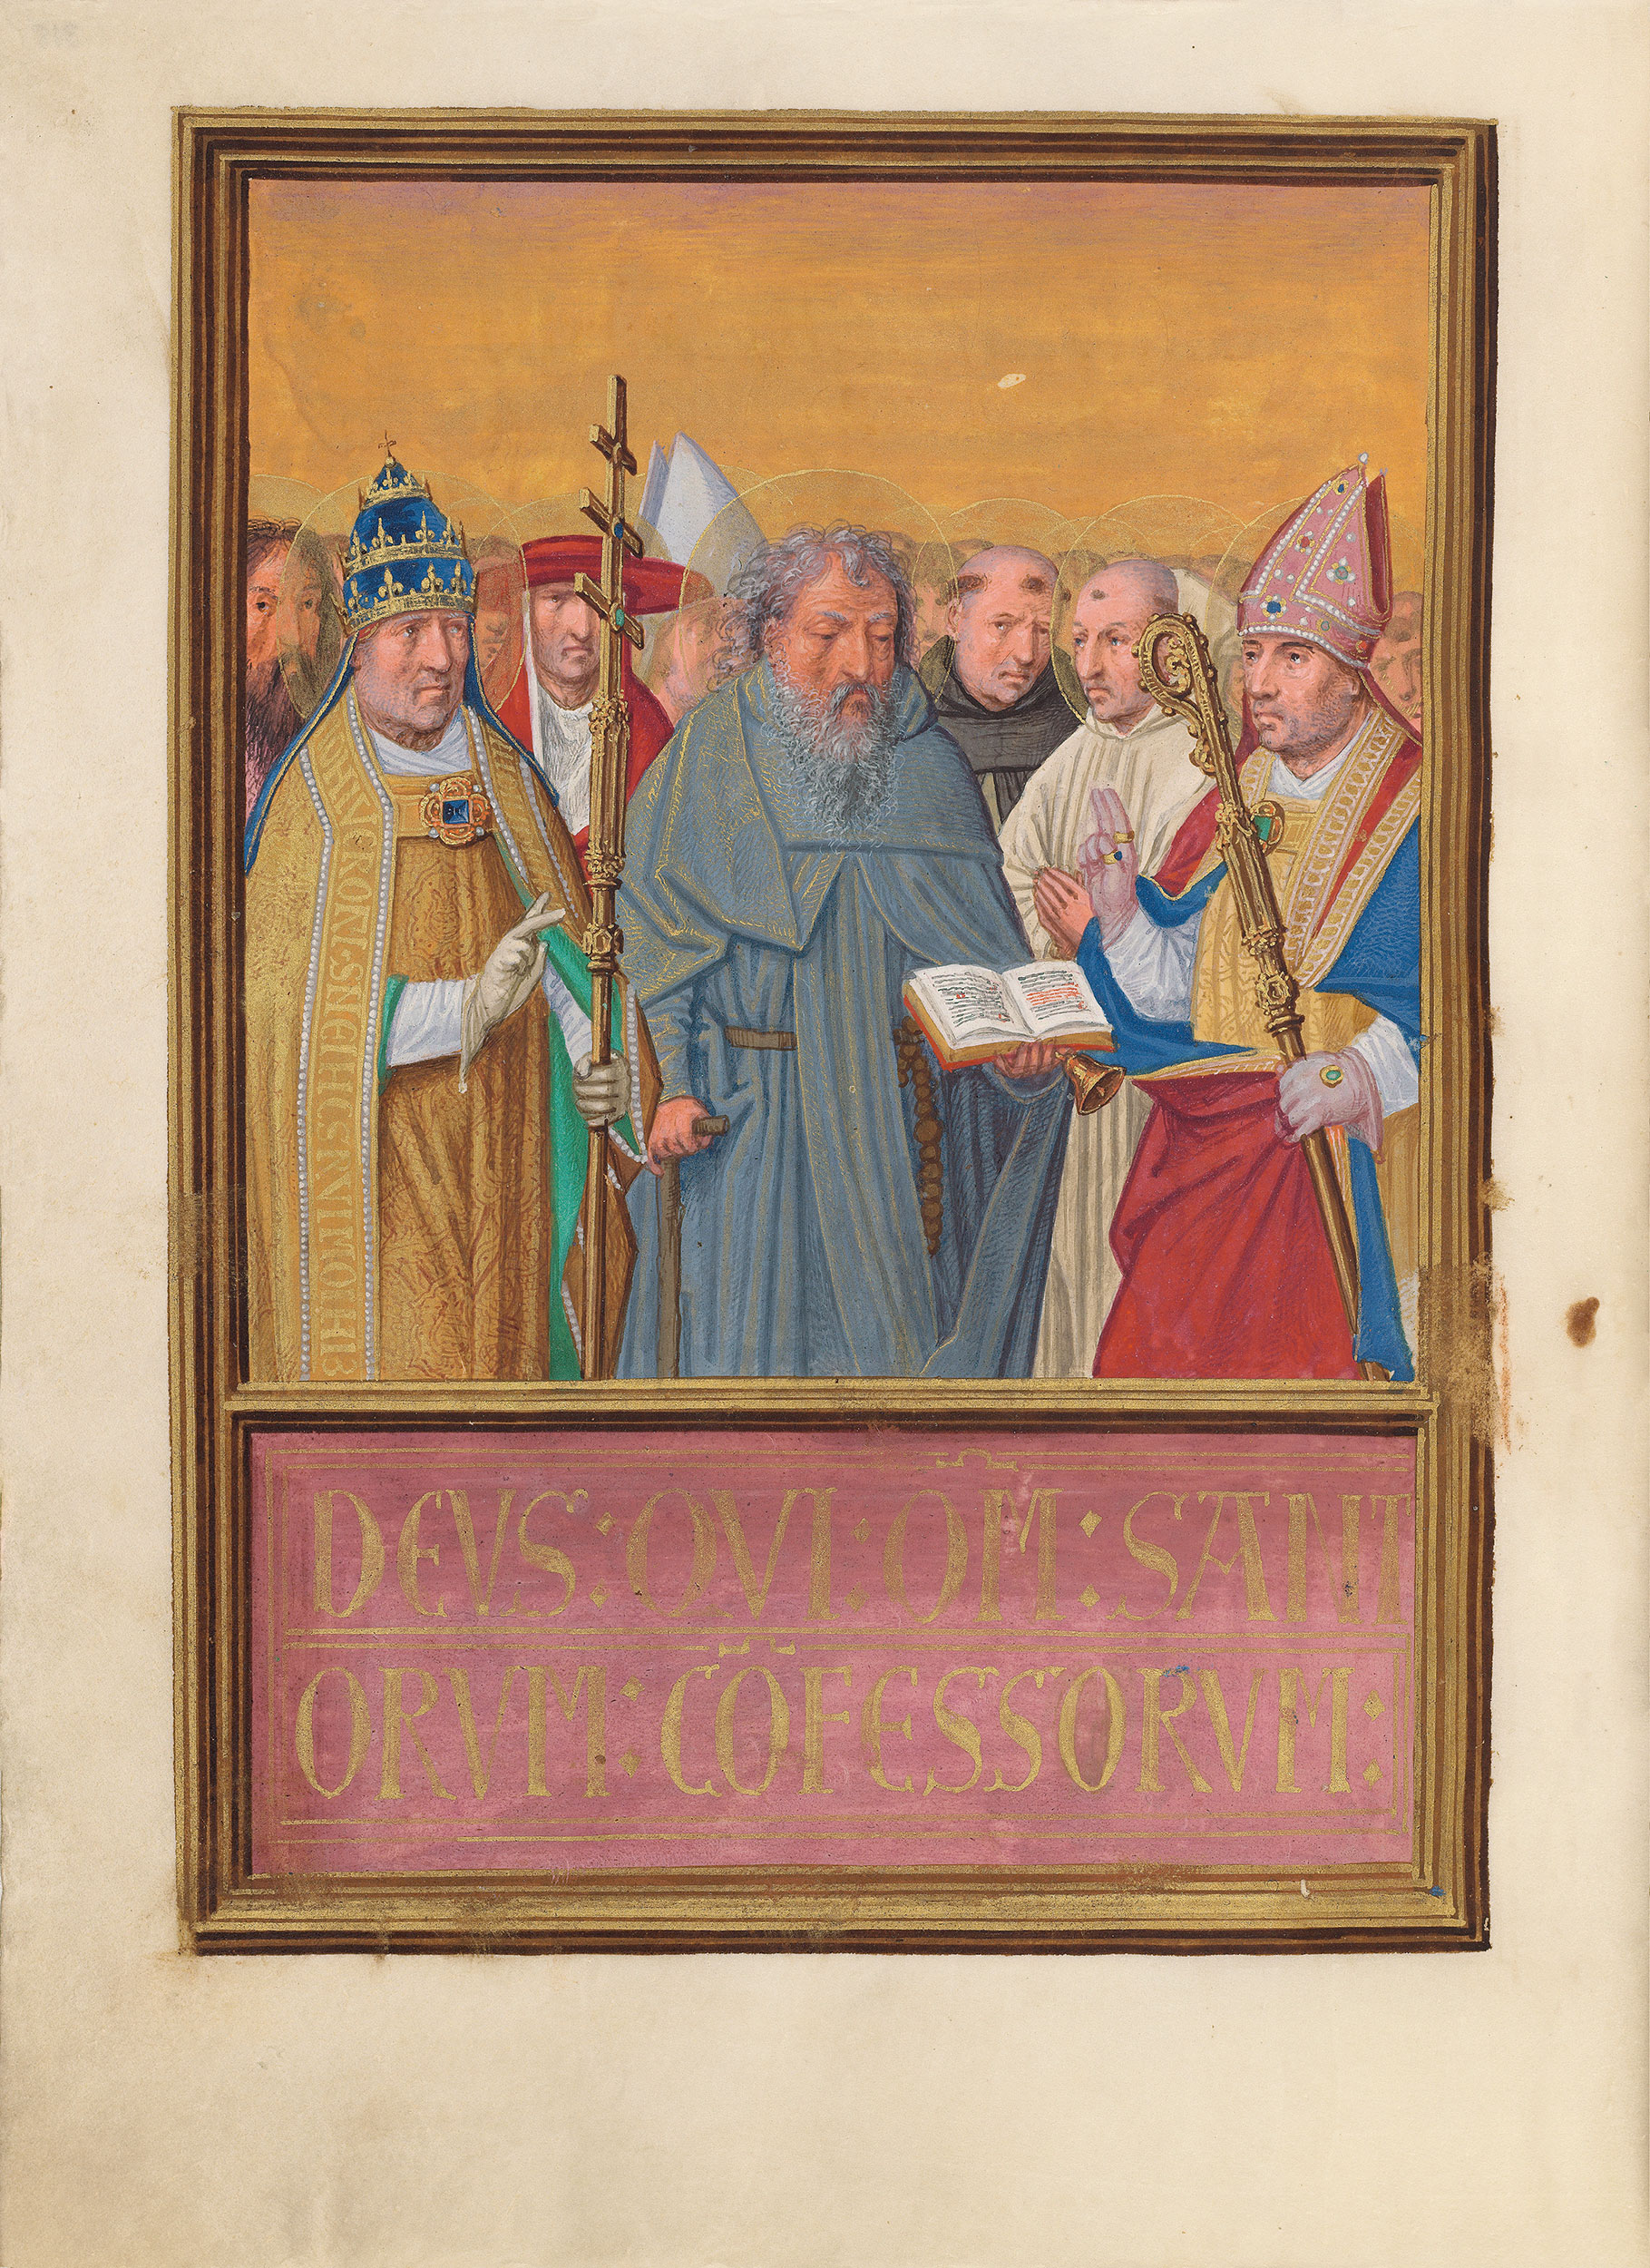 DEVS : QVI : OM̃ : SANT
ORVM : CÕFESSORVM :